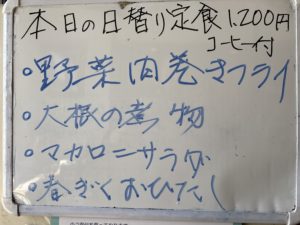 本日の日替り定食1,200円
コーヒー付
・野菜肉巻きフライ
・大根の煮物
・マカロニサラダ
・春ぎくおひたし